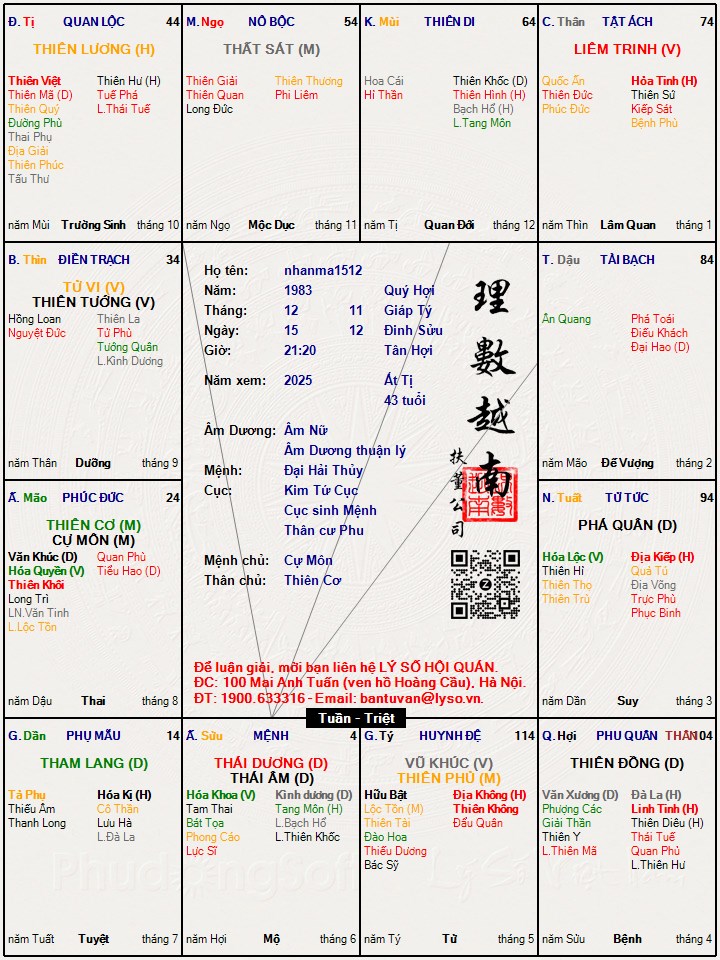 Đ. Tị QUAN LỘC 44
THIÊN LƯƠNG (H)
Thiên Việt Thiên Hư (H)
Thiên Mã (D) Tuế Phá
Thiên Quý L.Thái Tuế
Đường Phù
Thai Phụ
Địa Giải
Thiên Phúc
Tấu Thư
năm Mùi Trường Sinh tháng 10
M. Ngọ NÔ BỘC 54
THẤT SÁT (M)
Thiên Giải Thiên Thương
Thiên Quan Phi Liêm
Long Đức
năm Ngọ Mộc Dục tháng 11
K. Mùi THIÊN DI 64
Hoa Cái Thiên Khốc (D)
Hỉ Thần Thiên Hình (H)
Bạch Hổ (H)
L.Tang Môn
năm Tị Quan Đới tháng 12
C. Thân TẬT ÁCH 74
LIÊM TRINH (V)
Quốc Ấn Hỏa Tinh (H)
Thiên Đức Thiên Sứ
Phúc Đức Kiếp Sát
Bệnh Phù
năm Thìn Lâm Quan tháng 1
B. Thìn ĐIỀN TRẠCH 34
TỬ VI (V)
THIÊN TƯỚNG (V)
Hồng Loan Thiên La
Nguyệt Đức Tử Phù
Tướng Quân
L.Kình Dương
năm Thân Dưỡng tháng 9
Họ tên: nhanma1512
Năm: 1983 Quý Hợi
Tháng: 12 11 Giáp Tý
Ngày: 15 12 Đinh Sửu
Giờ: 21:20 Tân Hợi
Năm xem: 2025 Ất Tị
43 tuổi
Âm Dương: Âm Nữ
Âm Dương thuận lý
Mệnh: Đại Hải Thủy
Cục: Kim Tứ Cục
Cục sinh Mệnh
Thân cư Phu
Mệnh chủ: Cự Môn
Thân chủ: Thiên Cơ
理數越南
扶董公司
Để luận giải, mời bạn liên hệ LÝ SỐ HỘI QUÁN.
ĐC: 100 Mai Anh Tuấn (ven hồ Hoàng Cầu), Hà Nội.
ĐT: 1900.633316 - Email: bantuvan@lyso.vn.
Tuần - Triệt
T. Dậu TÀI BẠCH 84
Ân Quang Phá Toái
Điếu Khách
Đại Hao (D)
năm Mão Đế Vượng tháng 2
Ấ. Mão PHÚC ĐỨC 24
THIÊN CƠ (M)
CỰ MÔN (M)
Văn Khúc (D) Quan Phù
Hóa Quyền (V) Tiểu Hao (D)
Thiên Khôi
Long Trì
LN.Văn Tinh
L.Lộc Tồn
năm Dậu Thai tháng 8
N. Tuất TỬ TỨC 94
PHÁ QUÂN (D)
Hóa Lộc (V) Địa Kiếp (H)
Thiên Hỉ Quả Tú
Thiên Thọ Địa Võng
Thiên Trù Trực Phù
Phục Binh
năm Dần Suy tháng 3
G. Dần PHỤ MẪU 14
THAM LANG (D)
Tả Phụ Hóa Kị (H)
Thiếu Âm Cô Thần
Thanh Long Lưu Hà
L.Đà La
năm Tuất Tuyệt tháng 7
Ấ. Sửu MỆNH 4
THÁI DƯƠNG (D)
THÁI ÂM (D)
Hóa Khoa (V) Kình dương (D)
Tam Thai Tang Môn (H)
Bát Tọa L.Bạch Hổ
Phong Cáo L.Thiên Khốc
Lực Sĩ
năm Hợi Mộ tháng 6
G. Tý HUYNH ĐỆ 114
VŨ KHÚC (V)
THIÊN PHỦ (M)
Hữu Bật Địa Không (H)
Lộc Tồn (M) Thiên Không
Thiên Tài Đẩu Quân
Đào Hoa
Thiếu Dương
Bác Sỹ
năm Tý Tử tháng 5
Q. Hợi PHU QUÂN THÂN 104
THIÊN ĐỒNG (D)
Văn Xương (D) Đà La (H)
Phượng Các Linh Tinh (H)
Giải Thần Thiên Diêu (H)
Thiên Y Thái Tuế
L.Thiên Mã Quan Phủ
L.Thiên Hư
năm Sửu Bệnh tháng 4